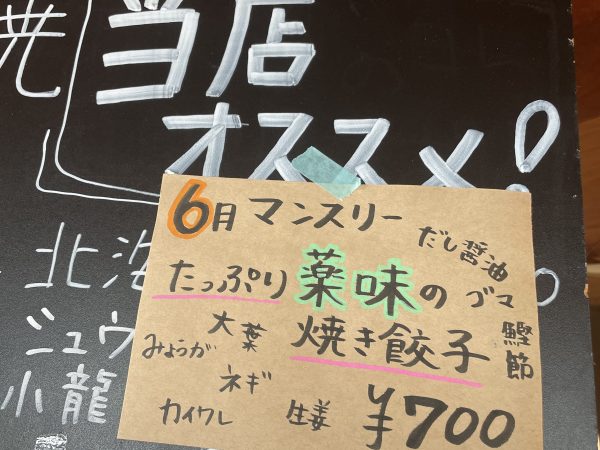 当店
オススメ!
6月マンスリー
だし醤油
たっぷり薬味の
ゴマ
大葉
みょうが
焼き餃子
鰹節
ネギ
カイワレ
生姜
¥700
北海
ニュウ
小龍